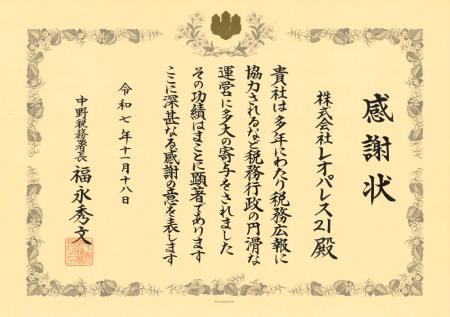 感謝状
株式会社レオパレス21殿
貴社は多年にわたり税務広報に
協力されるなど税務行政の円滑な
運営に多大の寄与をされました
その功績はまことに顕著であります
ここに深甚なる感謝の意を表します
令和七年十一月十八日
中野税務署長 福永秀文